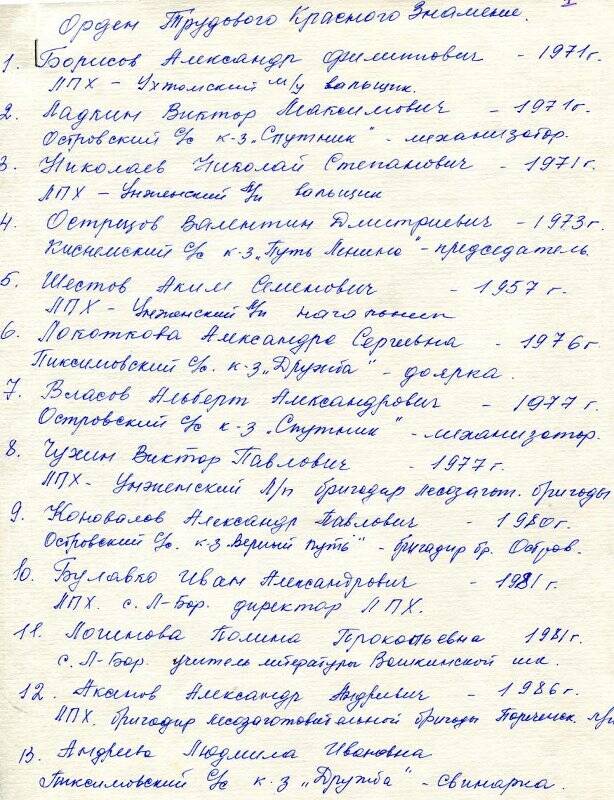 Орден Трудового Красного Знамение.
1. Борисов Александр Филиппович - 1971г.
ЛПХ - Ухтомский м/у вальщик.
2. Ладкин Виктор Максимович - 1971г.
Островский С/с к-з „Спутник" - механизатор.
3. Николаев Николай Степанович - 1971г.
ЛПХ - Унженский вальщик
4. Остредов Валентин Дмитриевич - 1973г.
Киснемский С/с к-з „Путь Ленина" - председатель.
5. Шестов Аким Семенович - 1957 г.
ЛПХ - Унженский
6. Локоткова Александра Сергиевна - 1976г.
Пиксимовский С/с. к-з „Дружба" - доярка.
7. Власов Альберт Александрович - 1977 г.
Островский С/с к-з „Спутник" - механизатор.
8. Чухин Виктор Павлович - 1977г.
ЛПХ - Унженский Л/п бригадир лесозагот. бригады
9. Коновалов Александр Павлович - 1980г.
Островский С/с. к-з Верный путь" - бригадир бр. Остров.
10. Булавко Иван Александрович - 1981г.
ЛПХ. с. Л-Бор. директор ЛПХ.
11. Логинова Полина Прокопьевна 1981г.
с. Л-Бор. учитель литературы Вашкинской шк.
12. Аксенов Александр Андриевич - 1986г.
ЛПХ. бригадир лесозаготовительной бригады Пореченск.
13. Андреева Людмила Ивановна
Пиксимовский С/с к-з „Дружба" - свинарка.